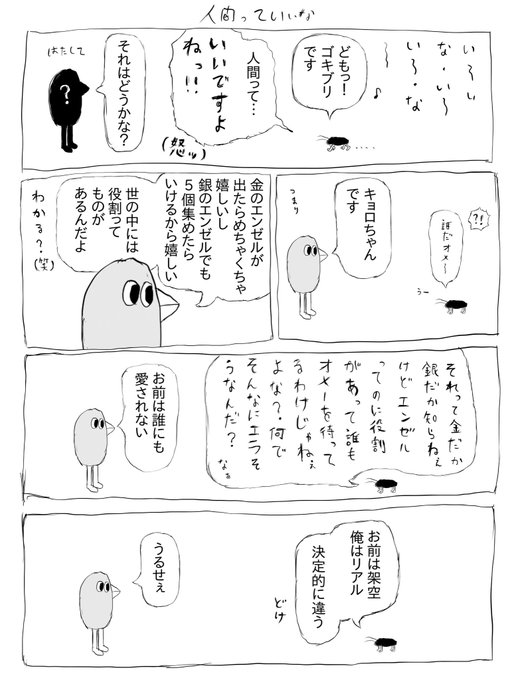 人間っていいな
いろい
な・いろ
いろ・な
〜♪
どもっ!
ゴキブリ
です
人間って…
いいですよ
ねっ!!
(怒ッ)
それはどうかな?
はたして
?
?!
誰だオメ〜
うー
キョロちゃん
です
つまり
金のエンゼルが
出たらめちゃくちゃ
嬉しいし
銀のエンゼルでも
5個集めたら
いけるから嬉しい
世の中には
役割って
ものが
あるんだよ
わかる?(笑)
それって金だか
銀だか知らねぇ
けどエンゼル
ってのに役割
があって誰も
オメーを待って
るわけじゃねぇ
よな?何で
そんなにエラそ
うなんだ?
なぁ
お前は誰にも
愛されない
お前は架空
俺はリアル
決定的に違う
どけ
うるせぇ